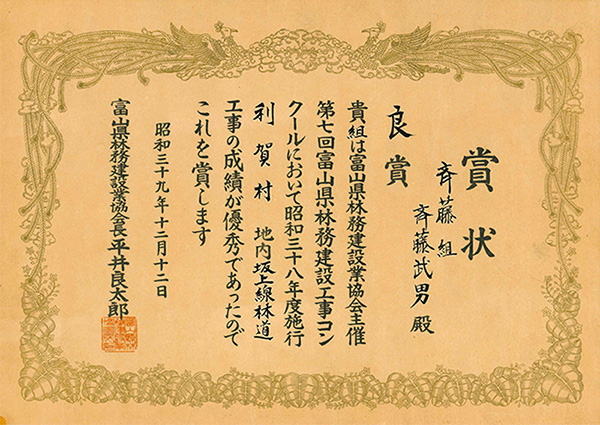 賞状
斉藤組
斉藤武男殿
良賞
貴組は富山県林務建設業協会主催
第七回富山県林務建設工事コン
クールにおいて昭和三十八年度施行
利賀村 地内坂上線林道
工事の成績が優秀であったので
これを賞します
昭和三十九年十二月十二日
富山県林務建設業協会長平井良太郎